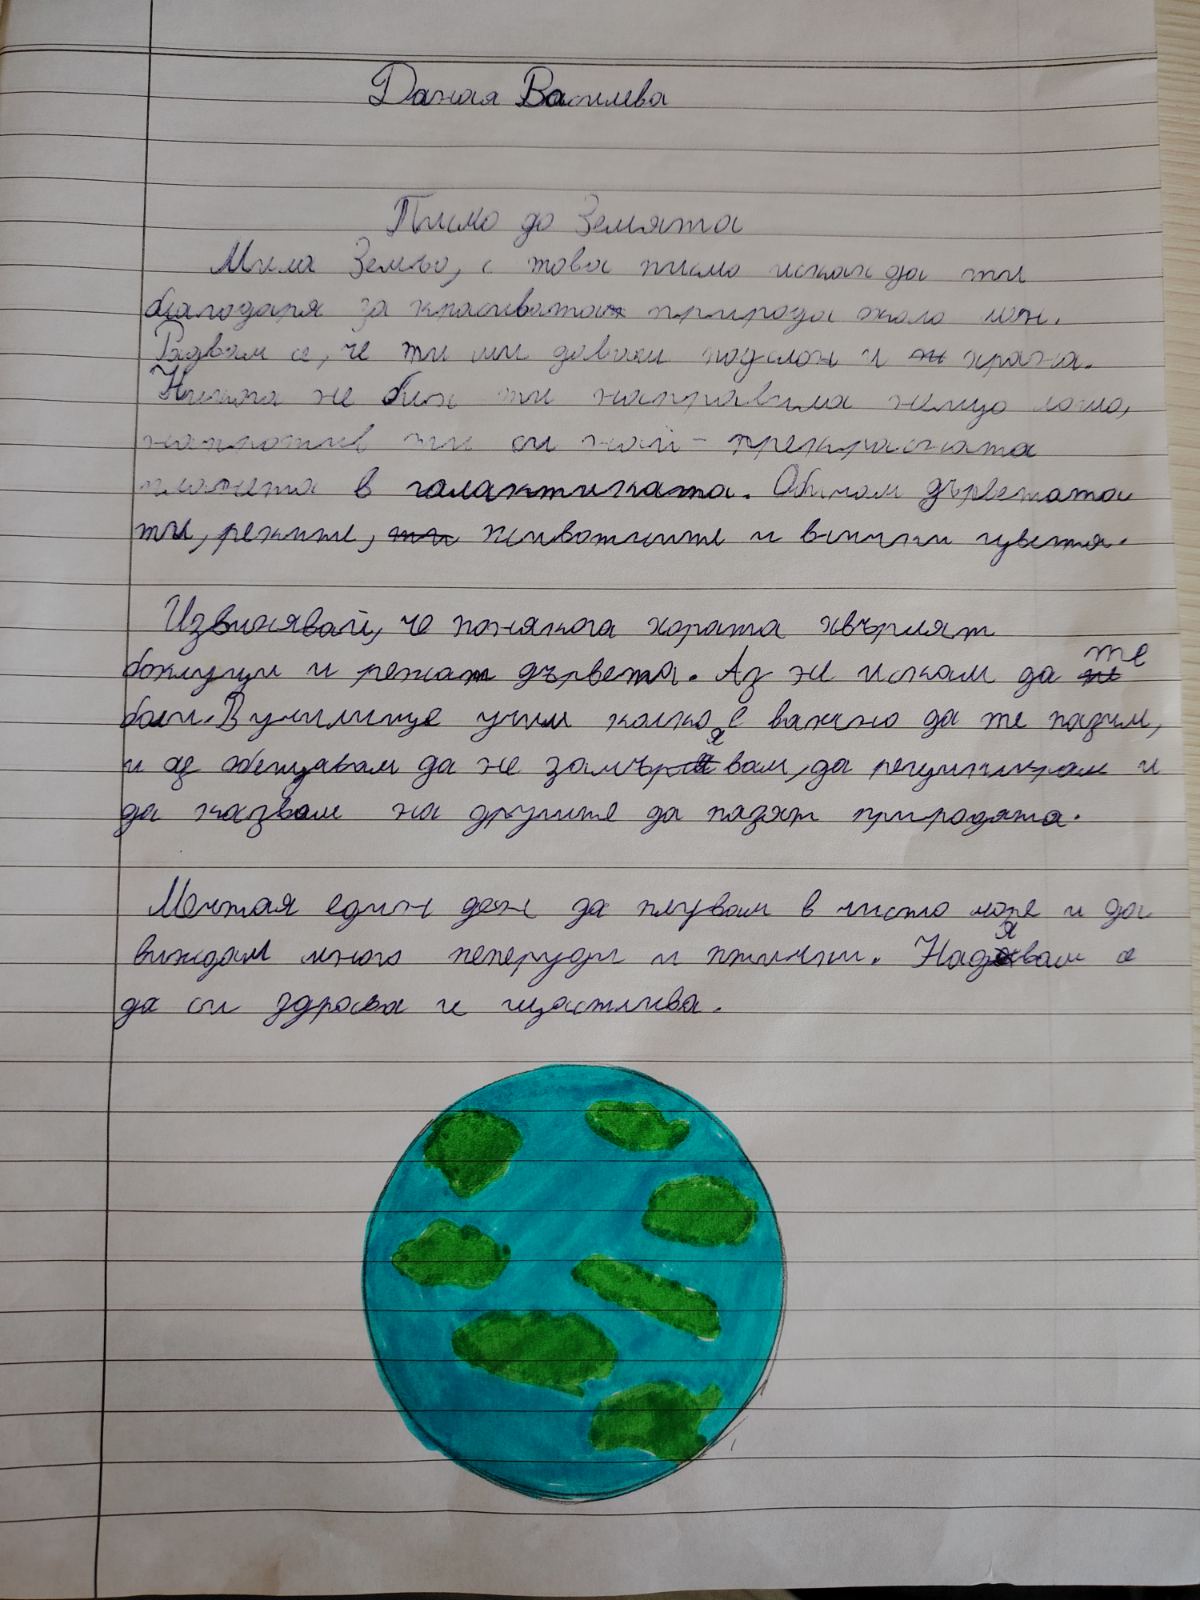 Даная Василева
Писмо до Земята
Мила Земьо, с това писмо искам да ти
благодаря за красивата природа около мен.
Радвам се, че ти ми даваш подслон и храна.
Никога не бих ти направила нещо лошо,
напротив ти си най-прекрасната
планета в галактиката. Обичам дърветата
ти, реките, животните и всички цветя.
Извинявай, че понякога хората хвърлят
боклуци и режат дървета. Аз не искам да те
боли. В училище учим колко е важно да те пазим,
и се обещавам да не замърсявам, да рециклирам и
да казвам на другите да пазят природата.
Мечтая един ден да плувам в чисто море и да
виждам много пеперуди и птички. Надявам се
да си здрава и щастлива.